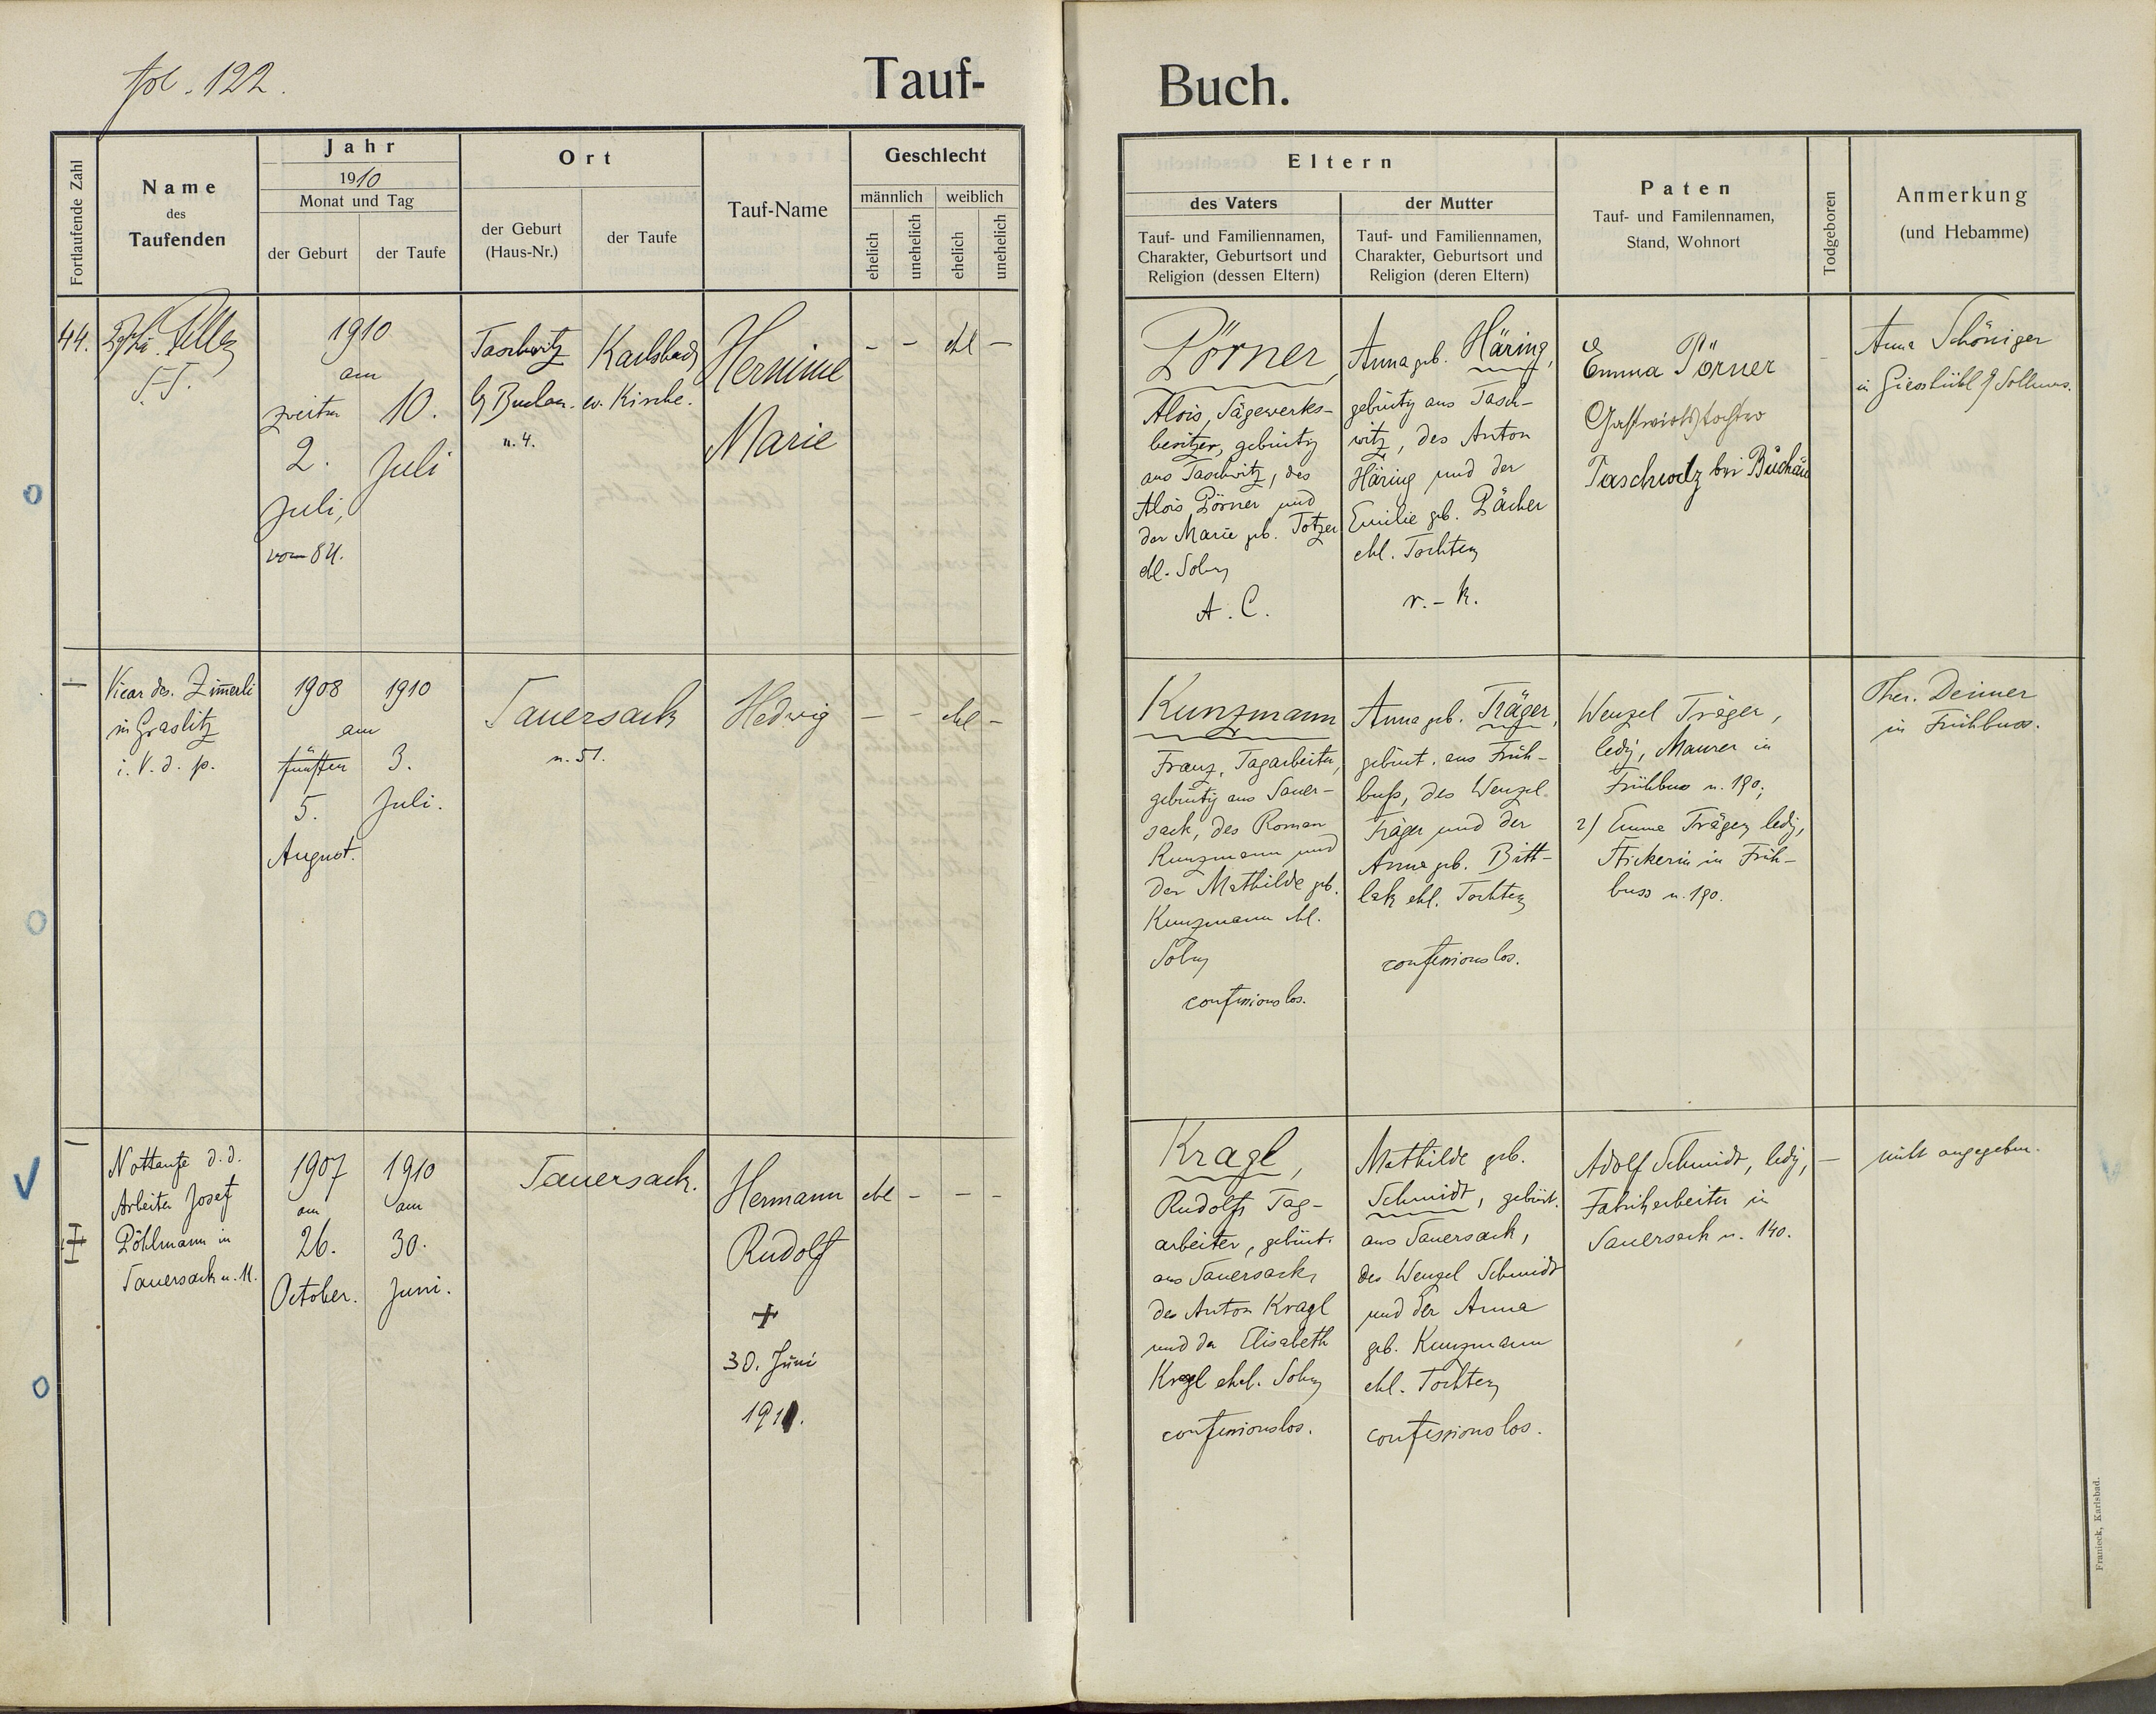 fol. 122.
Tauf-
Buch.
Fortlaufende Zahl
Name
des
Taufenden
Jahr
1910
Monat und Tag
der Geburt
der Taufe
Ort
der Geburt
(Haus-Nr.)
der Taufe
Tauf-Name
Geschlecht
männlich
weiblich
ehelich
unehelich
ehelich
unehelich
Eltern
des Vaters
Tauf- und Familiennamen,
Charakter, Geburtsort und
Religion (dessen Eltern)
der Mutter
Tauf- und Familiennamen,
Charakter, Geburtsort und
Religion (deren Eltern)
Paten
Tauf- und Familennamen,
Stand, Wohnort
Todgeboren
Anmerkung
(und Hebamme)
44.
1910
am
zweiten
2.
Juli,
10.
Juli
Taschwitz
b/ Buchau.
n. 4.
Karlsbad
ev. Kirche.
Hermine
Marie
- - ehl -
Pörner,
Alois, Sägewerks-
besitzer, gebürtig
aus Taschwitz, des
Alois Pörner und
der Marie geb. Totzer
ehl. Sohn
A. C.
Anna geb. Häring,
gebürtig aus Tasch-
witz, des Anton
Häring und der
Emilie geb. Pächer
ehl. Tochter
r.-k.
Emma Pörner
Gastwirtstochter
Taschwitz bei Buchau
Anna Schöniger
in Giesshübl
-
Vicar des. Zimmerli
in Graslitz
i. V. d. p.
1908
am
fünften
5.
August.
1910
3.
Juli.
Sauersack
n. 51.
Hedwig
- - ehl -
Kunzmann
Franz, Tagarbeiter,
gebürtig aus Sauer-
sack, des Roman
Kunzmann und
der Mathilde geb.
Kunzmann ehl.
Sohn
confessionslos.
Anna geb. Träger,
gebürt. aus Früh-
buß, des Wenzel
Träger und der
Anna geb. Bitt-
lak ehl. Tochter
confessionslos.
Wenzel Träger,
ledig, Maurer in
Frühbuss n. 190;
2/ Emma Träger, ledig,
Stickerin in Früh-
buss n. 190.
Ther. Deimer
in Frühbuss.
-
Nottaufe d. d.
Arbeiter Josef
Pöhlmann in
Sauersack n. 11.
1907
am
26.
October.
1910
am
30.
Juni.
Sauersack.
Hermann
Rudolf
+
30. Juni
1910.
ehl - - -
Kragl,
Rudolf, Tag-
arbeiter, gebürt.
aus Sauersack,
des Anton Kragl
und der Elisabeth
Kragl ehel. Sohn
confessionslos.
Mathilde geb.
Schmidt, gebürt.
aus Sauersack,
des Wenzel Schmidt
und der Anna
geb. Kunzmann
ehl. Tochter
confessionslos.
Adolf Schmidt, ledig,
Fabrikarbeiter in
Sauersack n. 140.
-
nicht angegeben.
Franieck, Karlsbad.